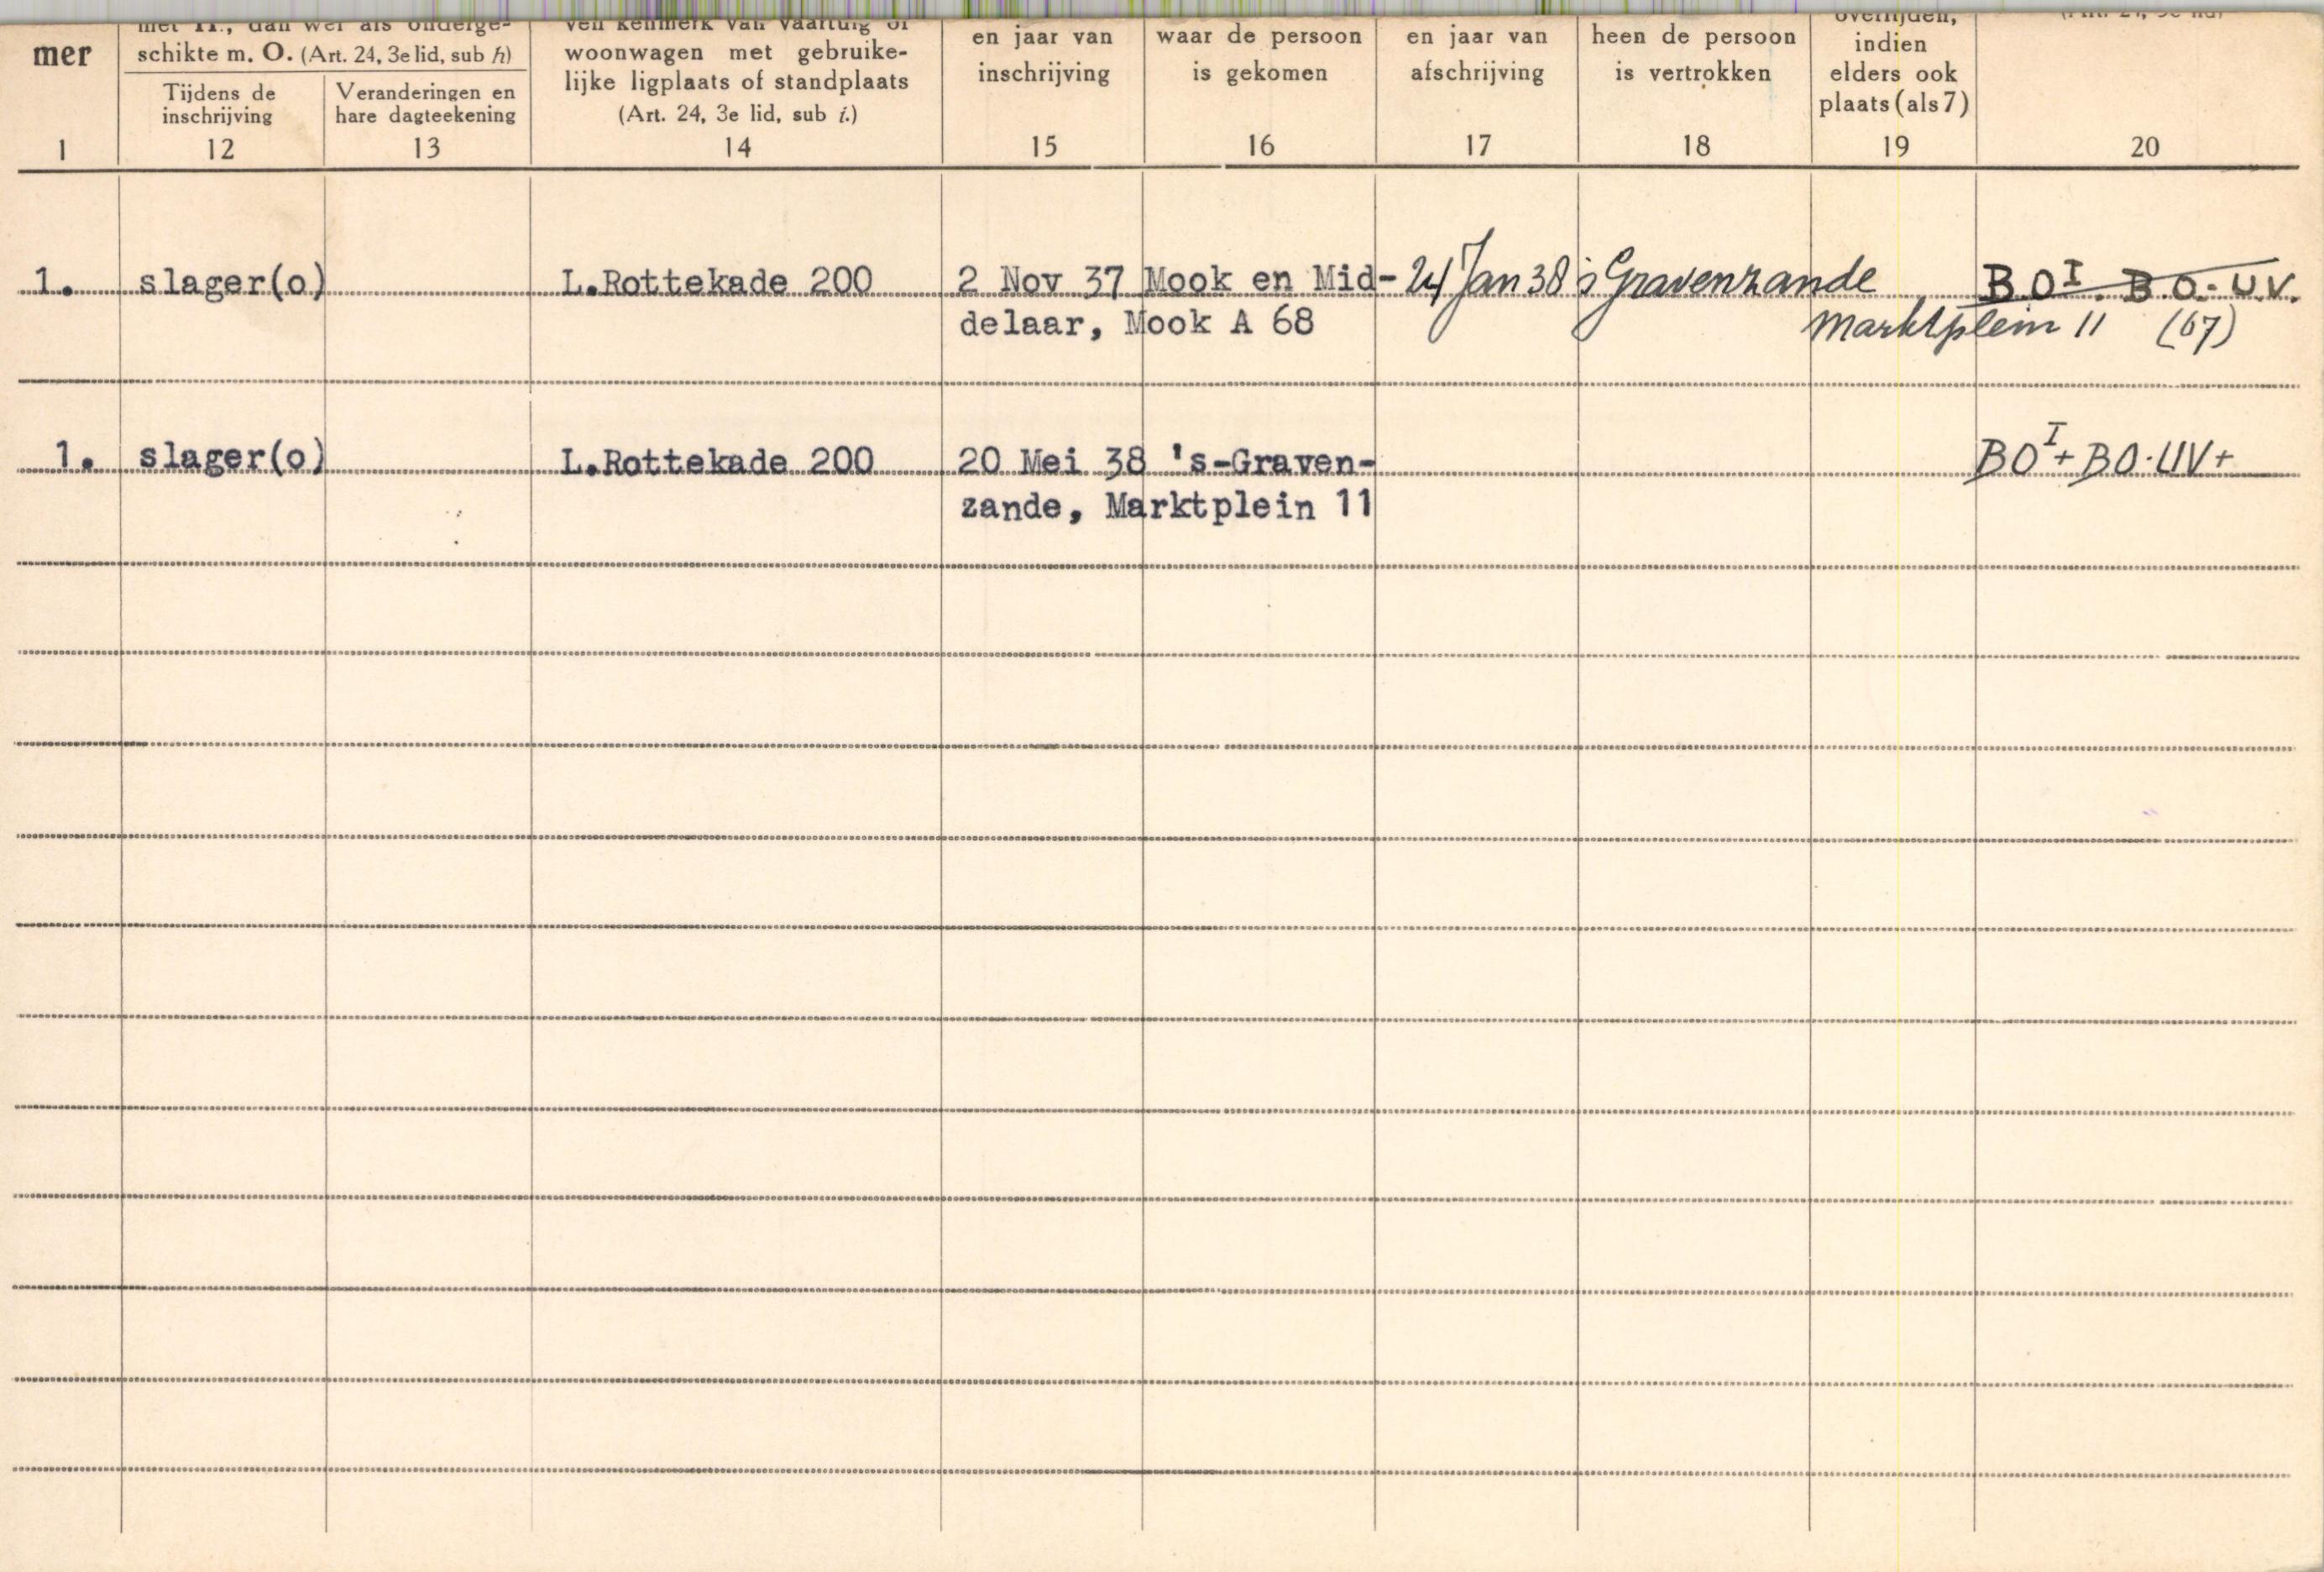 mer
schikte m. O. (Art. 24, 3e lid, sub h)
Tijdens de
inschrijving
Veranderingen en
hare dagteekening
met H., dan wel als onderge-
ven kenmerk van vaartuig of
woonwagen met gebruike-
lijke ligplaats of standplaats
(Art. 24, 3e lid, sub i.)
en jaar van
inschrijving
waar de persoon
is gekomen
en jaar van
afschrijving
heen de persoon
is vertrokken
overlijden,
indien
elders ook
plaats (als 7)
(Art. 24, 3e lid)
1 12 13 14 15 16 17 18 19 20
1. slager(o) L.Rottekade 200 2 Nov 37 Mook en Mid- 24 Jan 38 's Gravenzande B.O I. B.O.-U.V.
delaar, Mook A 68 Marktplein 11 (67)
1. slager(o) L.Rottekade 200 20 Mei 38 's-Graven- BO I + BO.UV+
zande, Marktplein 11